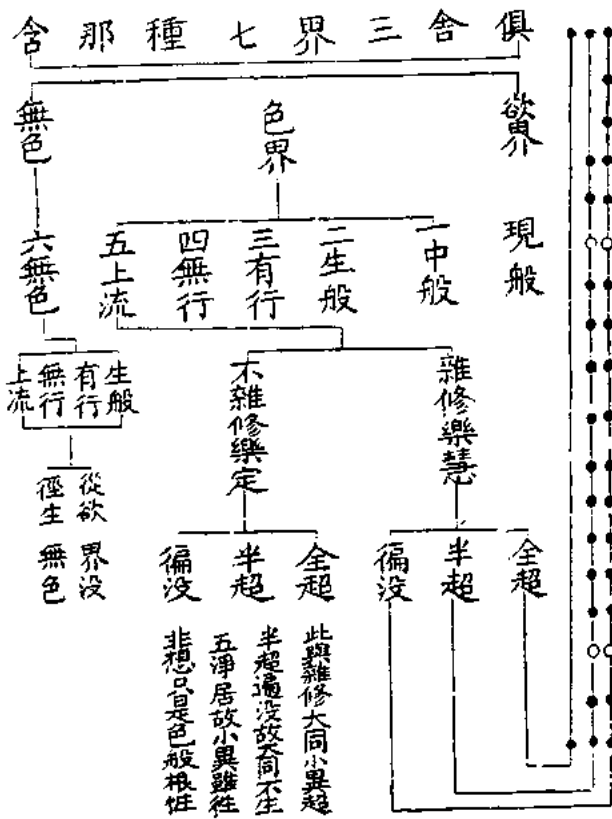 俱舍三界七種那含
欲界
現般
色界
一中般
二生般
三有行
四無行
五上流
無色
六無色
雜修樂慧
全超
半超
徧没
不雜修樂定
全超
半超
徧没
此與雜修大同小異超
半超遍没故大同不生
五淨居故小異雖往
非想只是色般根性
生般
有行
無行
上流
從欲界没
徑生無色